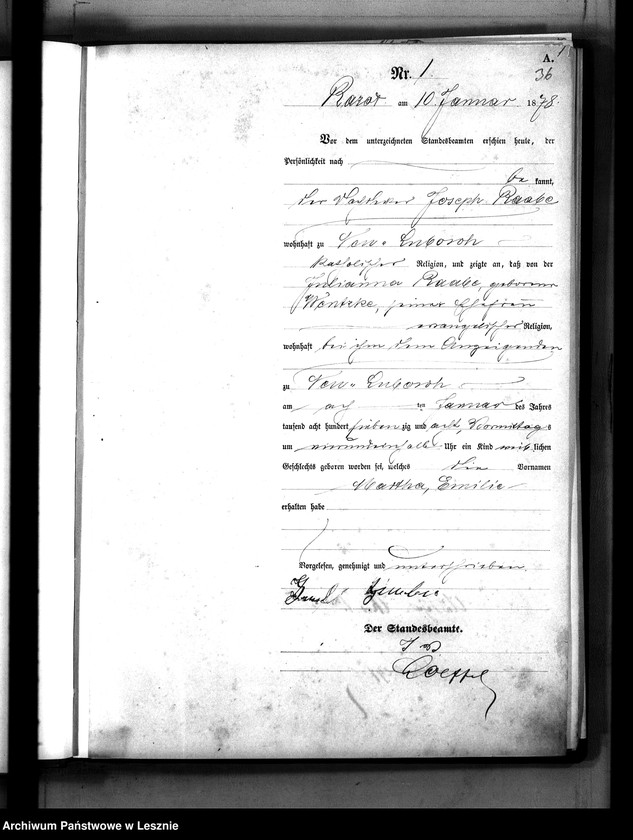 A.
36
Nr. 1
Razot am 10 Januar 1878.
Vor dem unterzeichneten Standesbeamten erschien heute, der
Persönlichkeit nach
be kannt,
der Joseph Raabe
wohnhaft zu Neu-Luborsch
katholischer Religion, und zeigte an, daß von der
Julianna Raabe, geborene
Wentzke, seiner Ehefrau
evangelischer Religion,
wohnhaft bei ihm dem Anzeigenden
zu Neu-Luborsch
am acht ten Januar des Jahres
tausend acht hundert sieben zig und acht, Vormittags
um Uhr ein Kind weib lichen
Geschlechts geboren worden sei, welches die Vornamen
Martha, Emilie
erhalten habe
Vorgelesen, genehmigt und unterschrieben
Der Standesbeamte.
Archiwum Państwowe w Lesznie